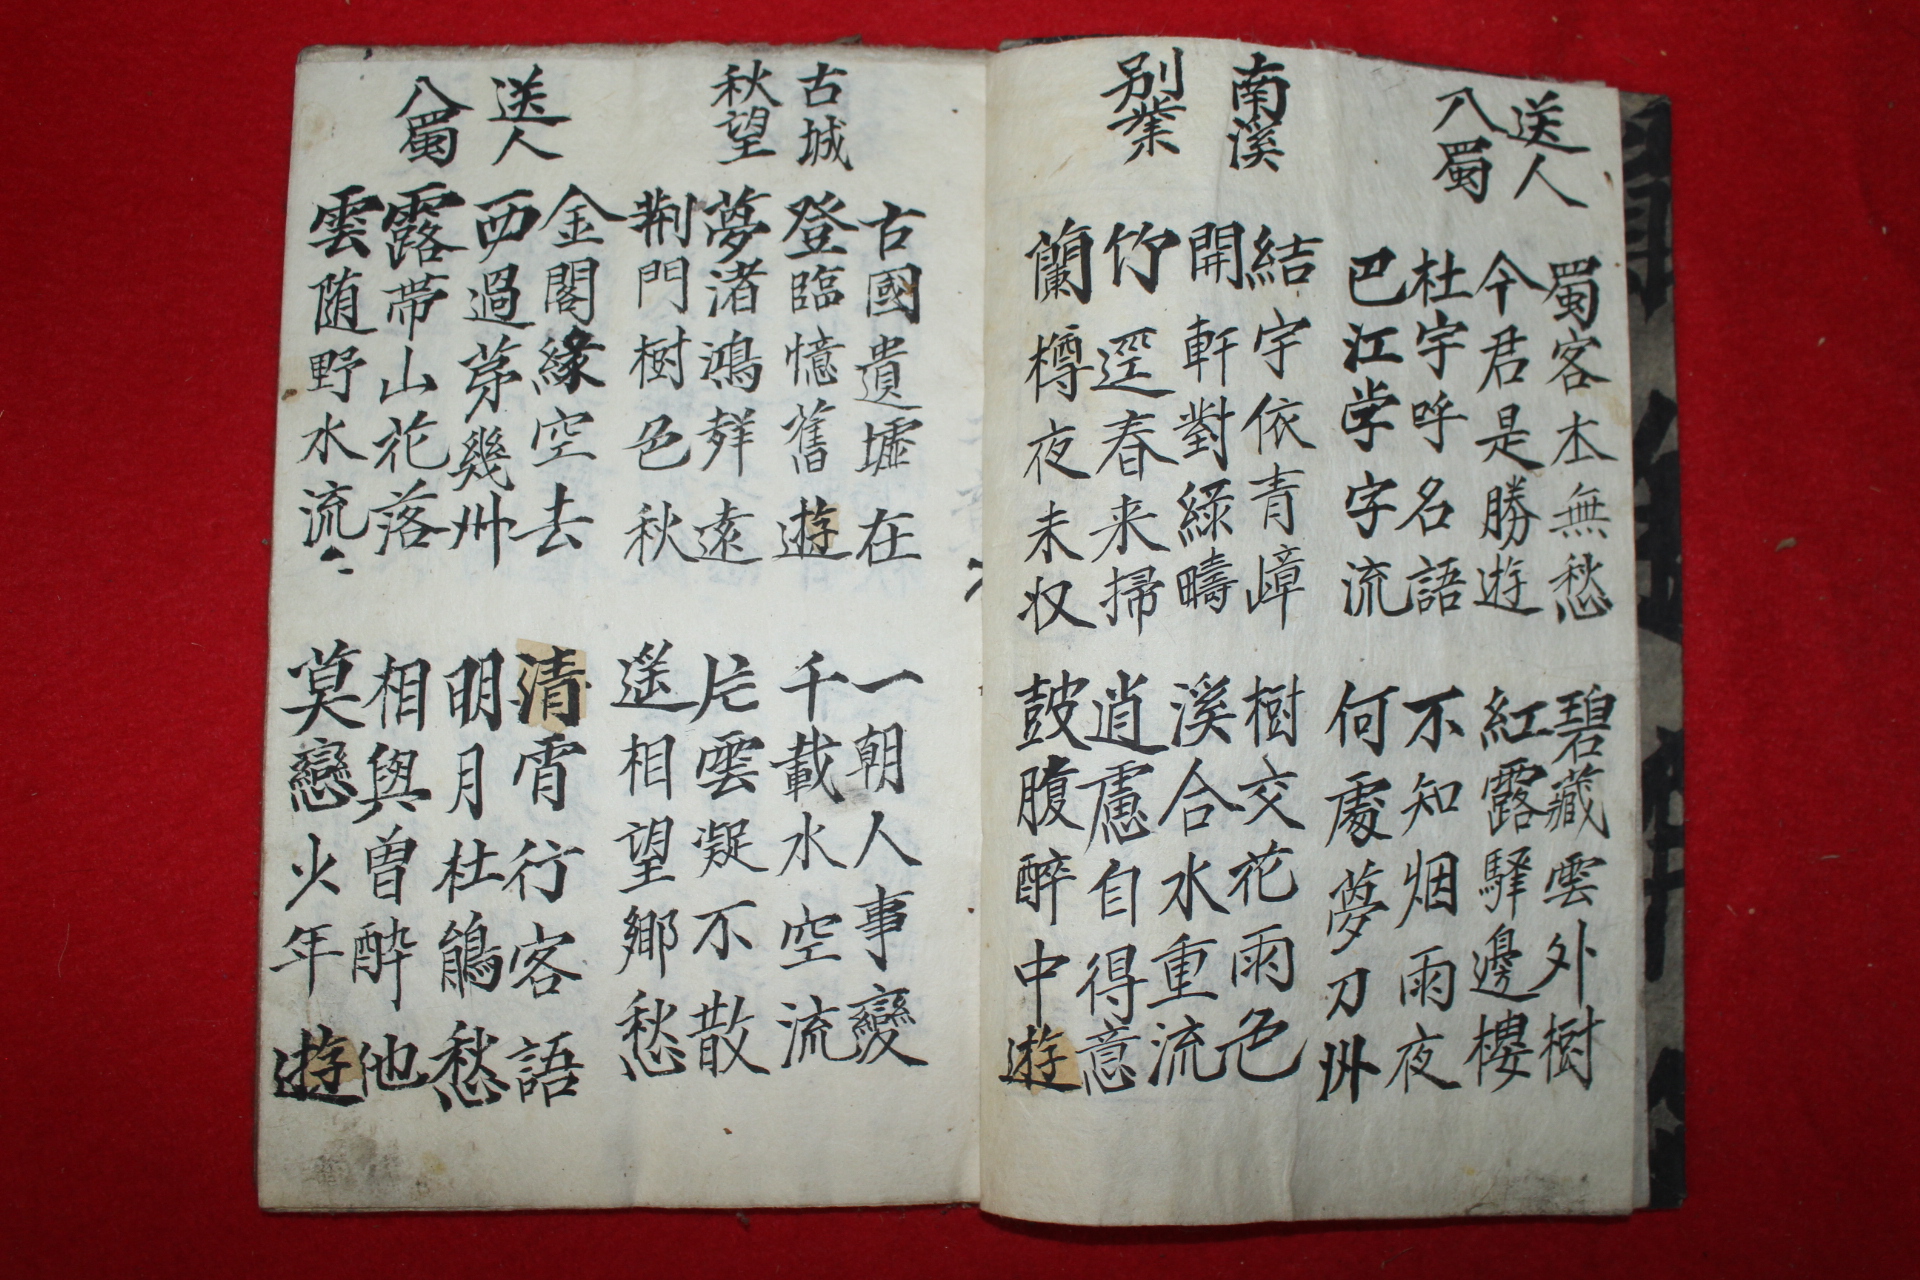 送人
入蜀
蜀客本無愁
碧藏雲外樹
今君是勝遊
紅露驛邊樓
杜宇呼名語
不知烟雨夜
巴江学字流
何處夢刀州
南溪
別業
結宇依青嶂
樹交花雨色
開軒對綠疇
溪合水重流
竹逕春来掃
逍慮自得意
蘭樽夜未収
鼓腹醉中遊
古城
秋望
古國遺墟在
一朝人事變
登臨憶舊遊
千載水空流
夢渚鴻聲遠
片雲凝不散
荆門樹色秋
遥相望鄉愁
送人
入蜀
金閣緣空去
清宵行客語
西過芽幾州
明月杜鵑愁
露帶山花落
相與曾酔他
雲随野水流
莫戀少年遊